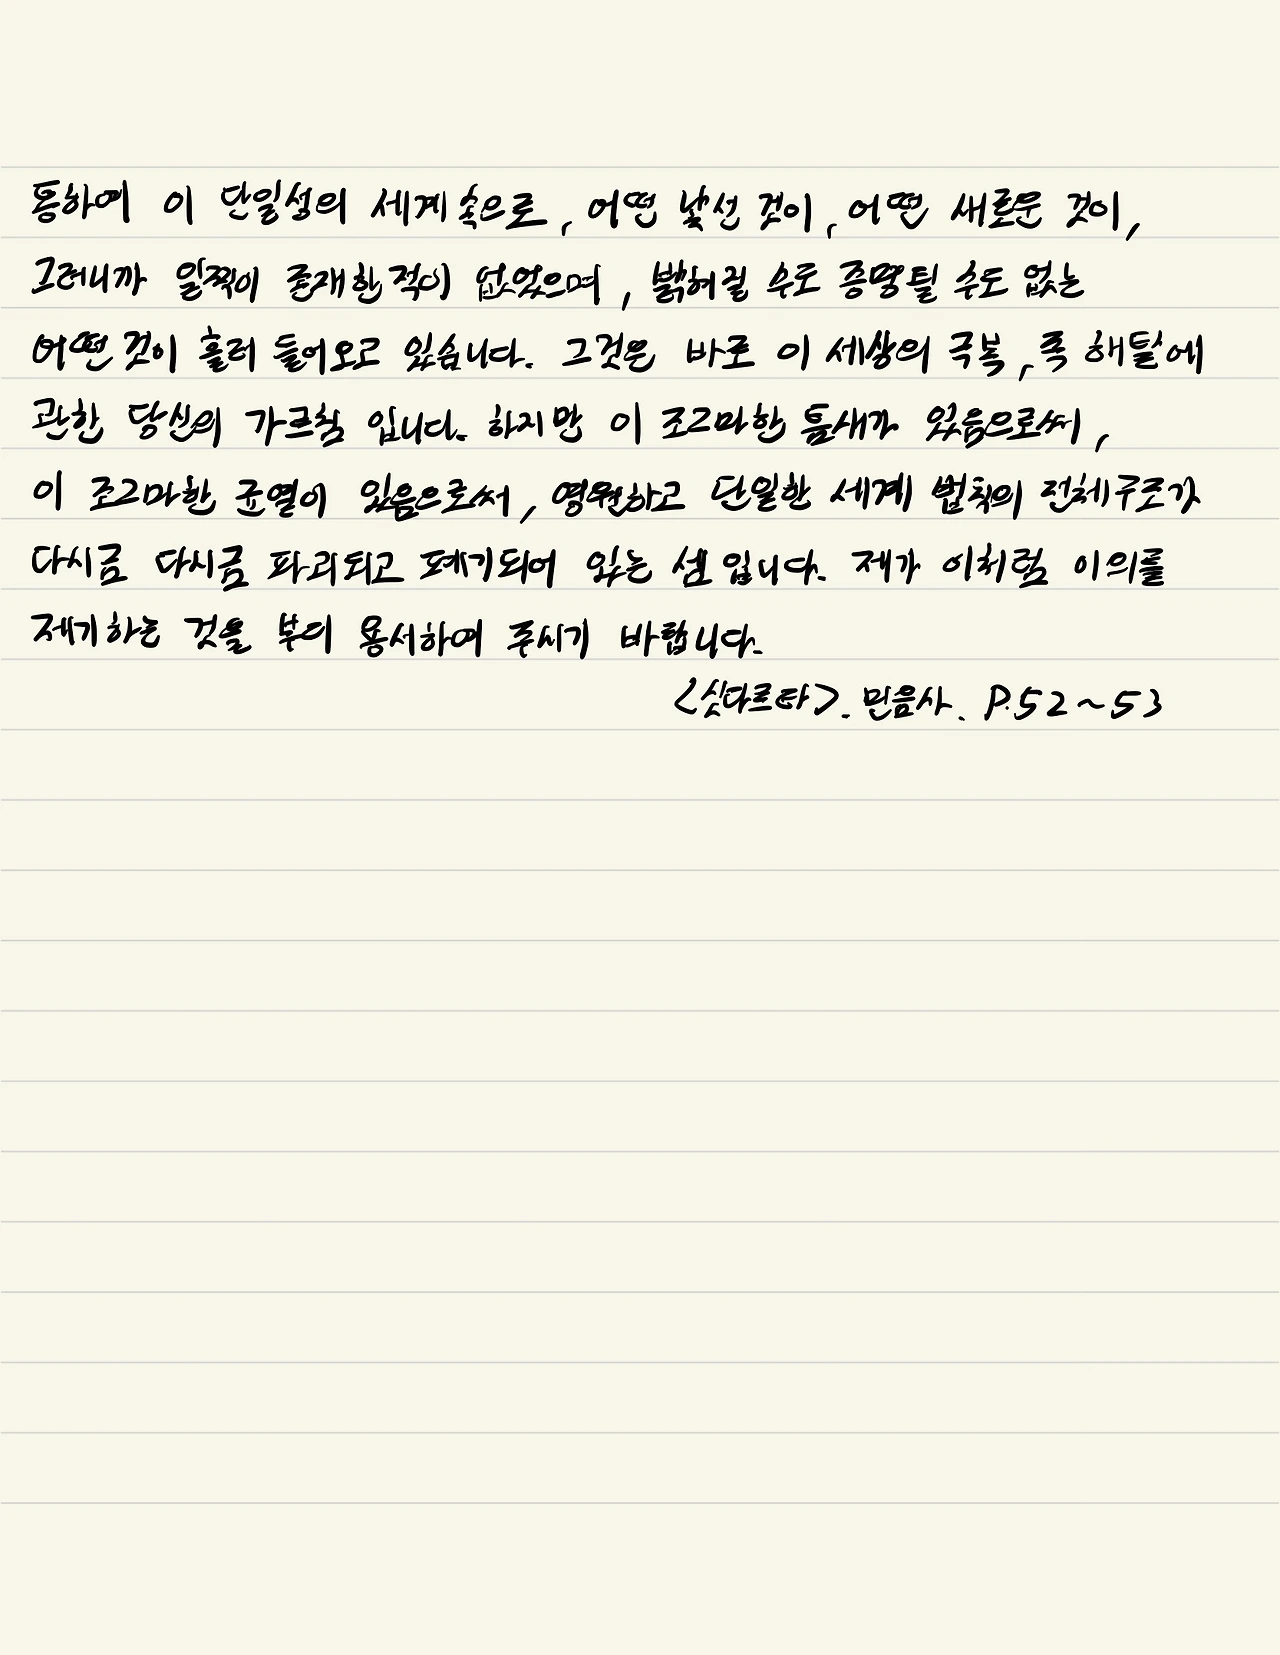 통하여 이 단일성의 세계 속으로, 어떤 낯선 것이, 어떤 새로운 것이,
그러니까 일찍이 존재한 적이 없었으며, 밝혀질 수도 증명될 수도 없는
어떤 것이 흘러 들어오고 있습니다. 그것은 바로 이 세상의 극복, 즉 해탈에
관한 당신의 가르침 입니다. 하지만 이 조그마한 틈새가 있음으로써,
이 조그마한 균열이 있음으로써, 영원하고 단일한 세계 법칙의 전체구조가
다시금 다시금 파괴되고 폐기되어 있는 셈 입니다. 제가 이처럼 이의를
제기하는 것을 부디 용서하여 주시기 바랍니다.
<싯다르타>. 민음사. P.52~53